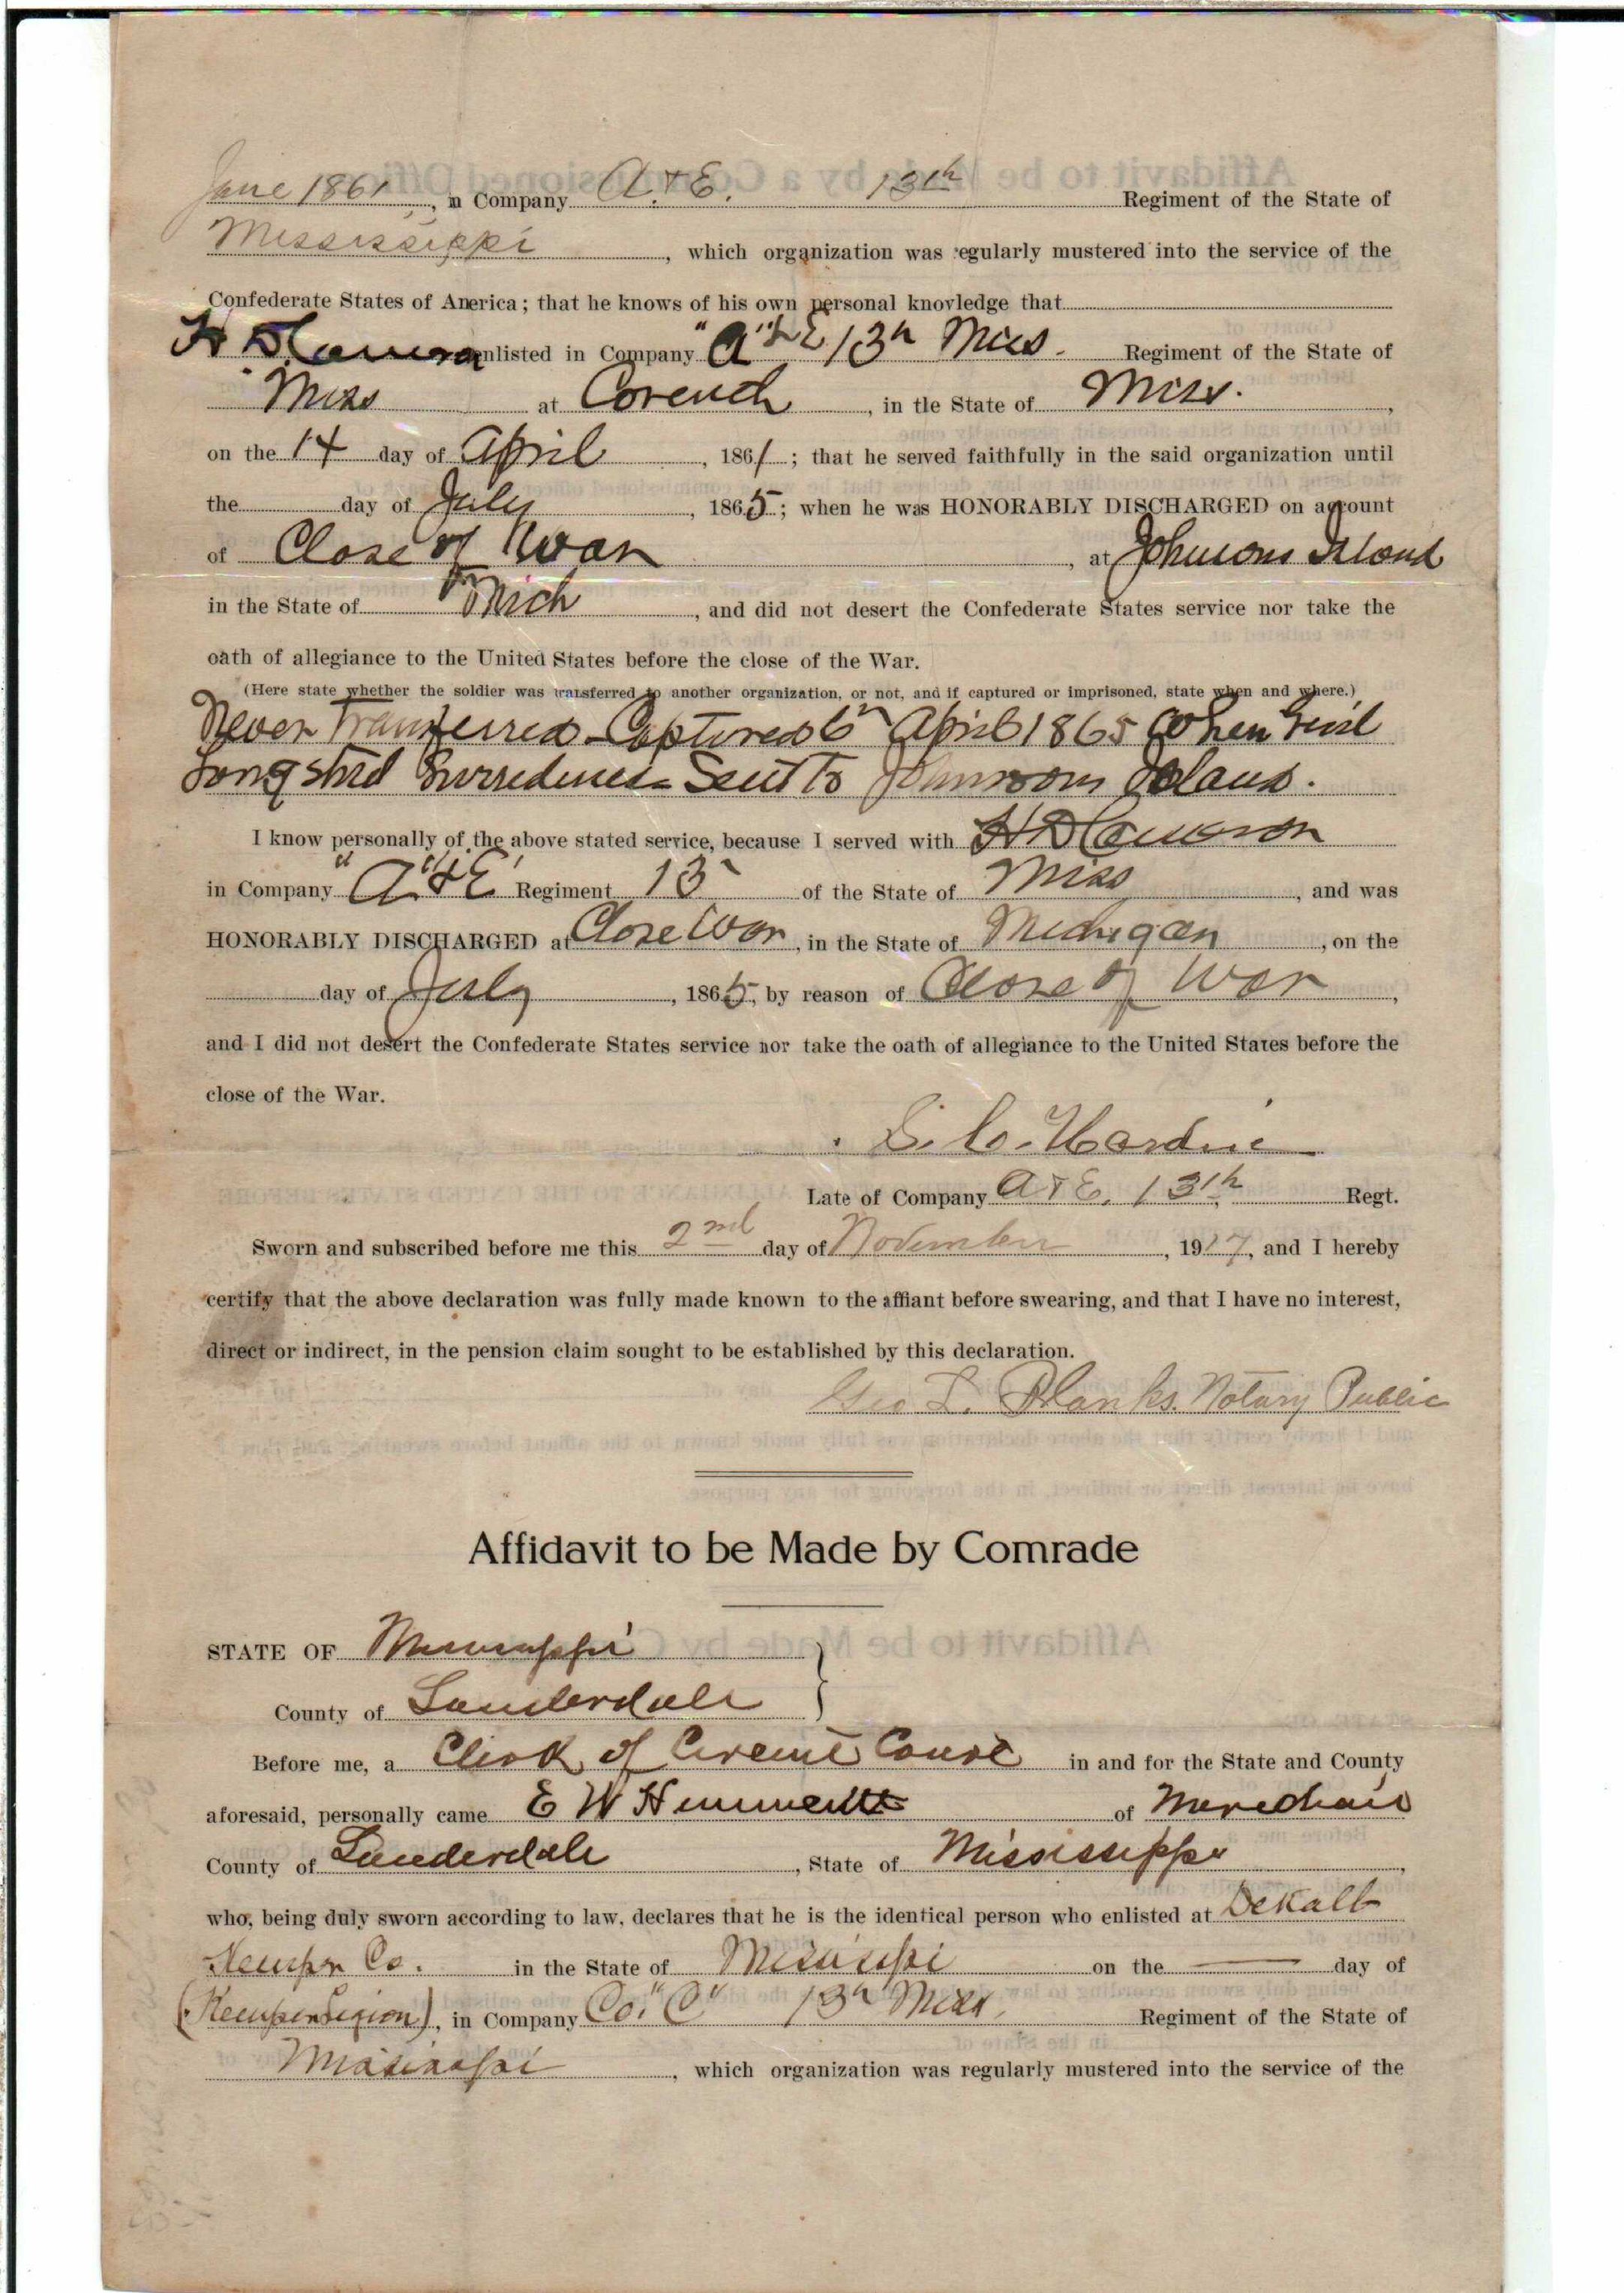 June 1861, in Company A. & E. 13th Regiment of the State of
Mississippi, which organization was regularly mustered into the service of the
Confederate States of America; that he knows of his own personal knowledge that
H D Cameron enlisted in Company "A" & E 13th Miss. Regiment of the State of
Miss at Corenth, in the State of Miss.,
on the 14 day of April, 1861; that he served faithfully in the said organization until
the day of July, 1865; when he was HONORABLY DISCHARGED on account
of Close of War, at Johnsons Island
in the State of Mich, and did not desert the Confederate States service nor take the
oath of allegiance to the United States before the close of the War.
(Here state whether the soldier was transferred to another organization, or not, and if captured or imprisoned, state when and where.)
Never Transferred - Captured 6th April 1865 When
Sent To Johnsons Island.
I know personally of the above stated service, because I served with H D Cameron
in Company "A" & E Regiment 13 of the State of Miss, and was
HONORABLY DISCHARGED at Close War, in the State of Michigan, on the
day of July, 1865, by reason of Close of War,
and I did not desert the Confederate States service nor take the oath of allegiance to the United States before the
close of the War.
S. Co. Hardin
Late of Company A & E. 13th Regt.
Sworn and subscribed before me this 2nd day of November, 1917, and I hereby
certify that the above declaration was fully made known to the affiant before swearing, and that I have no interest,
direct or indirect, in the pension claim sought to be established by this declaration.
Geo L. Blanks. Notary Public
Affidavit to be Made by Comrade
STATE OF Mississippi
County of Lauderdale
Before me, a Clerk of Circuit Court in and for the State and County
aforesaid, personally came E W of Meredian
County of Lauderdale, State of Mississippi,
who, being duly sworn according to law, declares that he is the identical person who enlisted at DeKalb
Kemper Co. in the State of Mississippi on the — day of
(Kemper Legion), in Company Co. "C" 13th Miss. Regiment of the State of
Mississippi, which organization was regularly mustered into the service of the